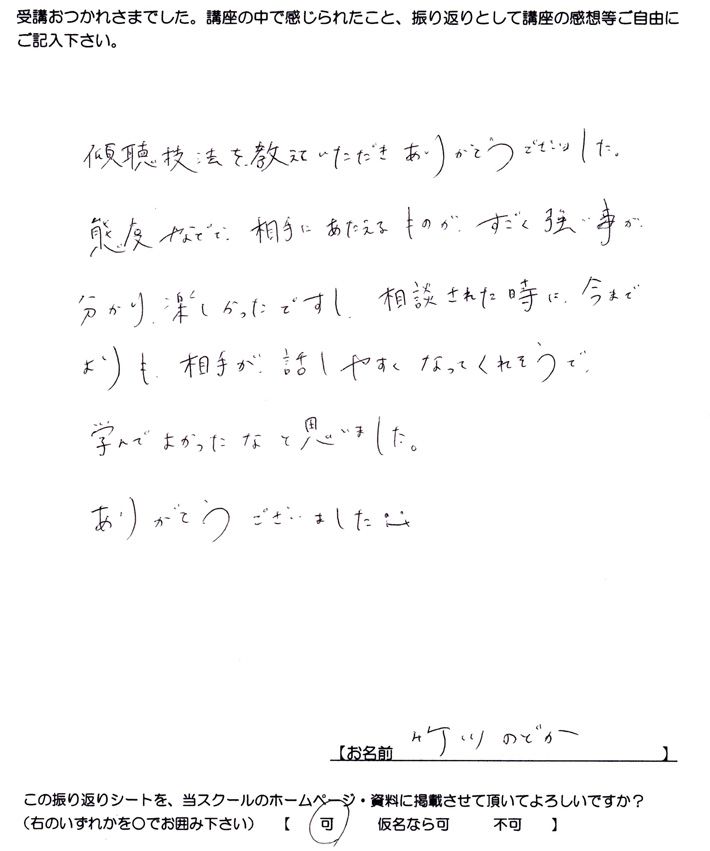 受講おつかれさまでした。講座の中で感じられたこと、振り返りとして講座の感想等ご自由に
ご記入下さい。
傾聴技法を教えていただきありがとうございました。
態度などで、相手にあたえるものが、すごく強い事が、
分かり、楽しかったですし、相談された時に、今まで
よりも、相手が、話しやすくなってくれそうで、
学んでよかったなと思いました。
ありがとうございました
【お名前 竹川 のどか 】
この振り返りシートを、当スクールのホームページ・資料に掲載させて頂いてよろしいですか？
（右のいずれかを〇でお囲み下さい） 【 可 仮名なら可 不可 】